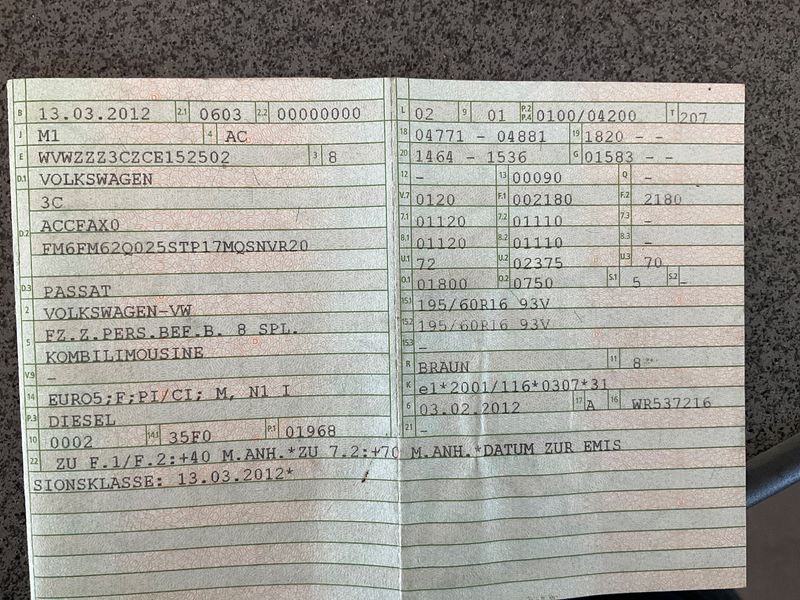 B 13.03.2012 2.1 0603 2.2 00000000
J M1 4 AC
E WVWZZZ3CZCE152502 3 8
D.1 VOLKSWAGEN
3C
D.2 ACCFAX0
FM6FM62Q025STP17MQSNVR20
D.3 PASSAT
2 VOLKSWAGEN-VW
5 FZ.Z.PERS.BEF.B. 8 SPL.
KOMBILIMOUSINE
V.9 -
14 EURO5;F;PI/CI; M, N1 I
P.3 DIESEL
10 0002 14.1 35F0 P.1 01968
L 02 9 01 P.2 P.4 0100/04200 T 207
18 04771 - 04881 19 1820 - -
20 1464 - 1536 G 01583 - -
12 - 13 00090 Q -
V.7 0120 F.1 002180 F.2 2180
7.1 01120 7.2 01110 7.3 -
8.1 01120 8.2 01110 8.3 -
U.1 72 U.2 02375 U.3 70
O.1 01800 O.2 0750 S.1 5 S.2 -
15.1 195/60R16 93V
15.2 195/60R16 93V
15.3 -
R BRAUN 11 8
K e1*2001/116*0307*31
6 03.02.2012 17 A 16 WR537216
21 -
22 ZU F.1/F.2:+40 M.ANH.*ZU 7.2:+70 M.ANH.*DATUM ZUR EMIS
SIONSKLASSE: 13.03.2012*